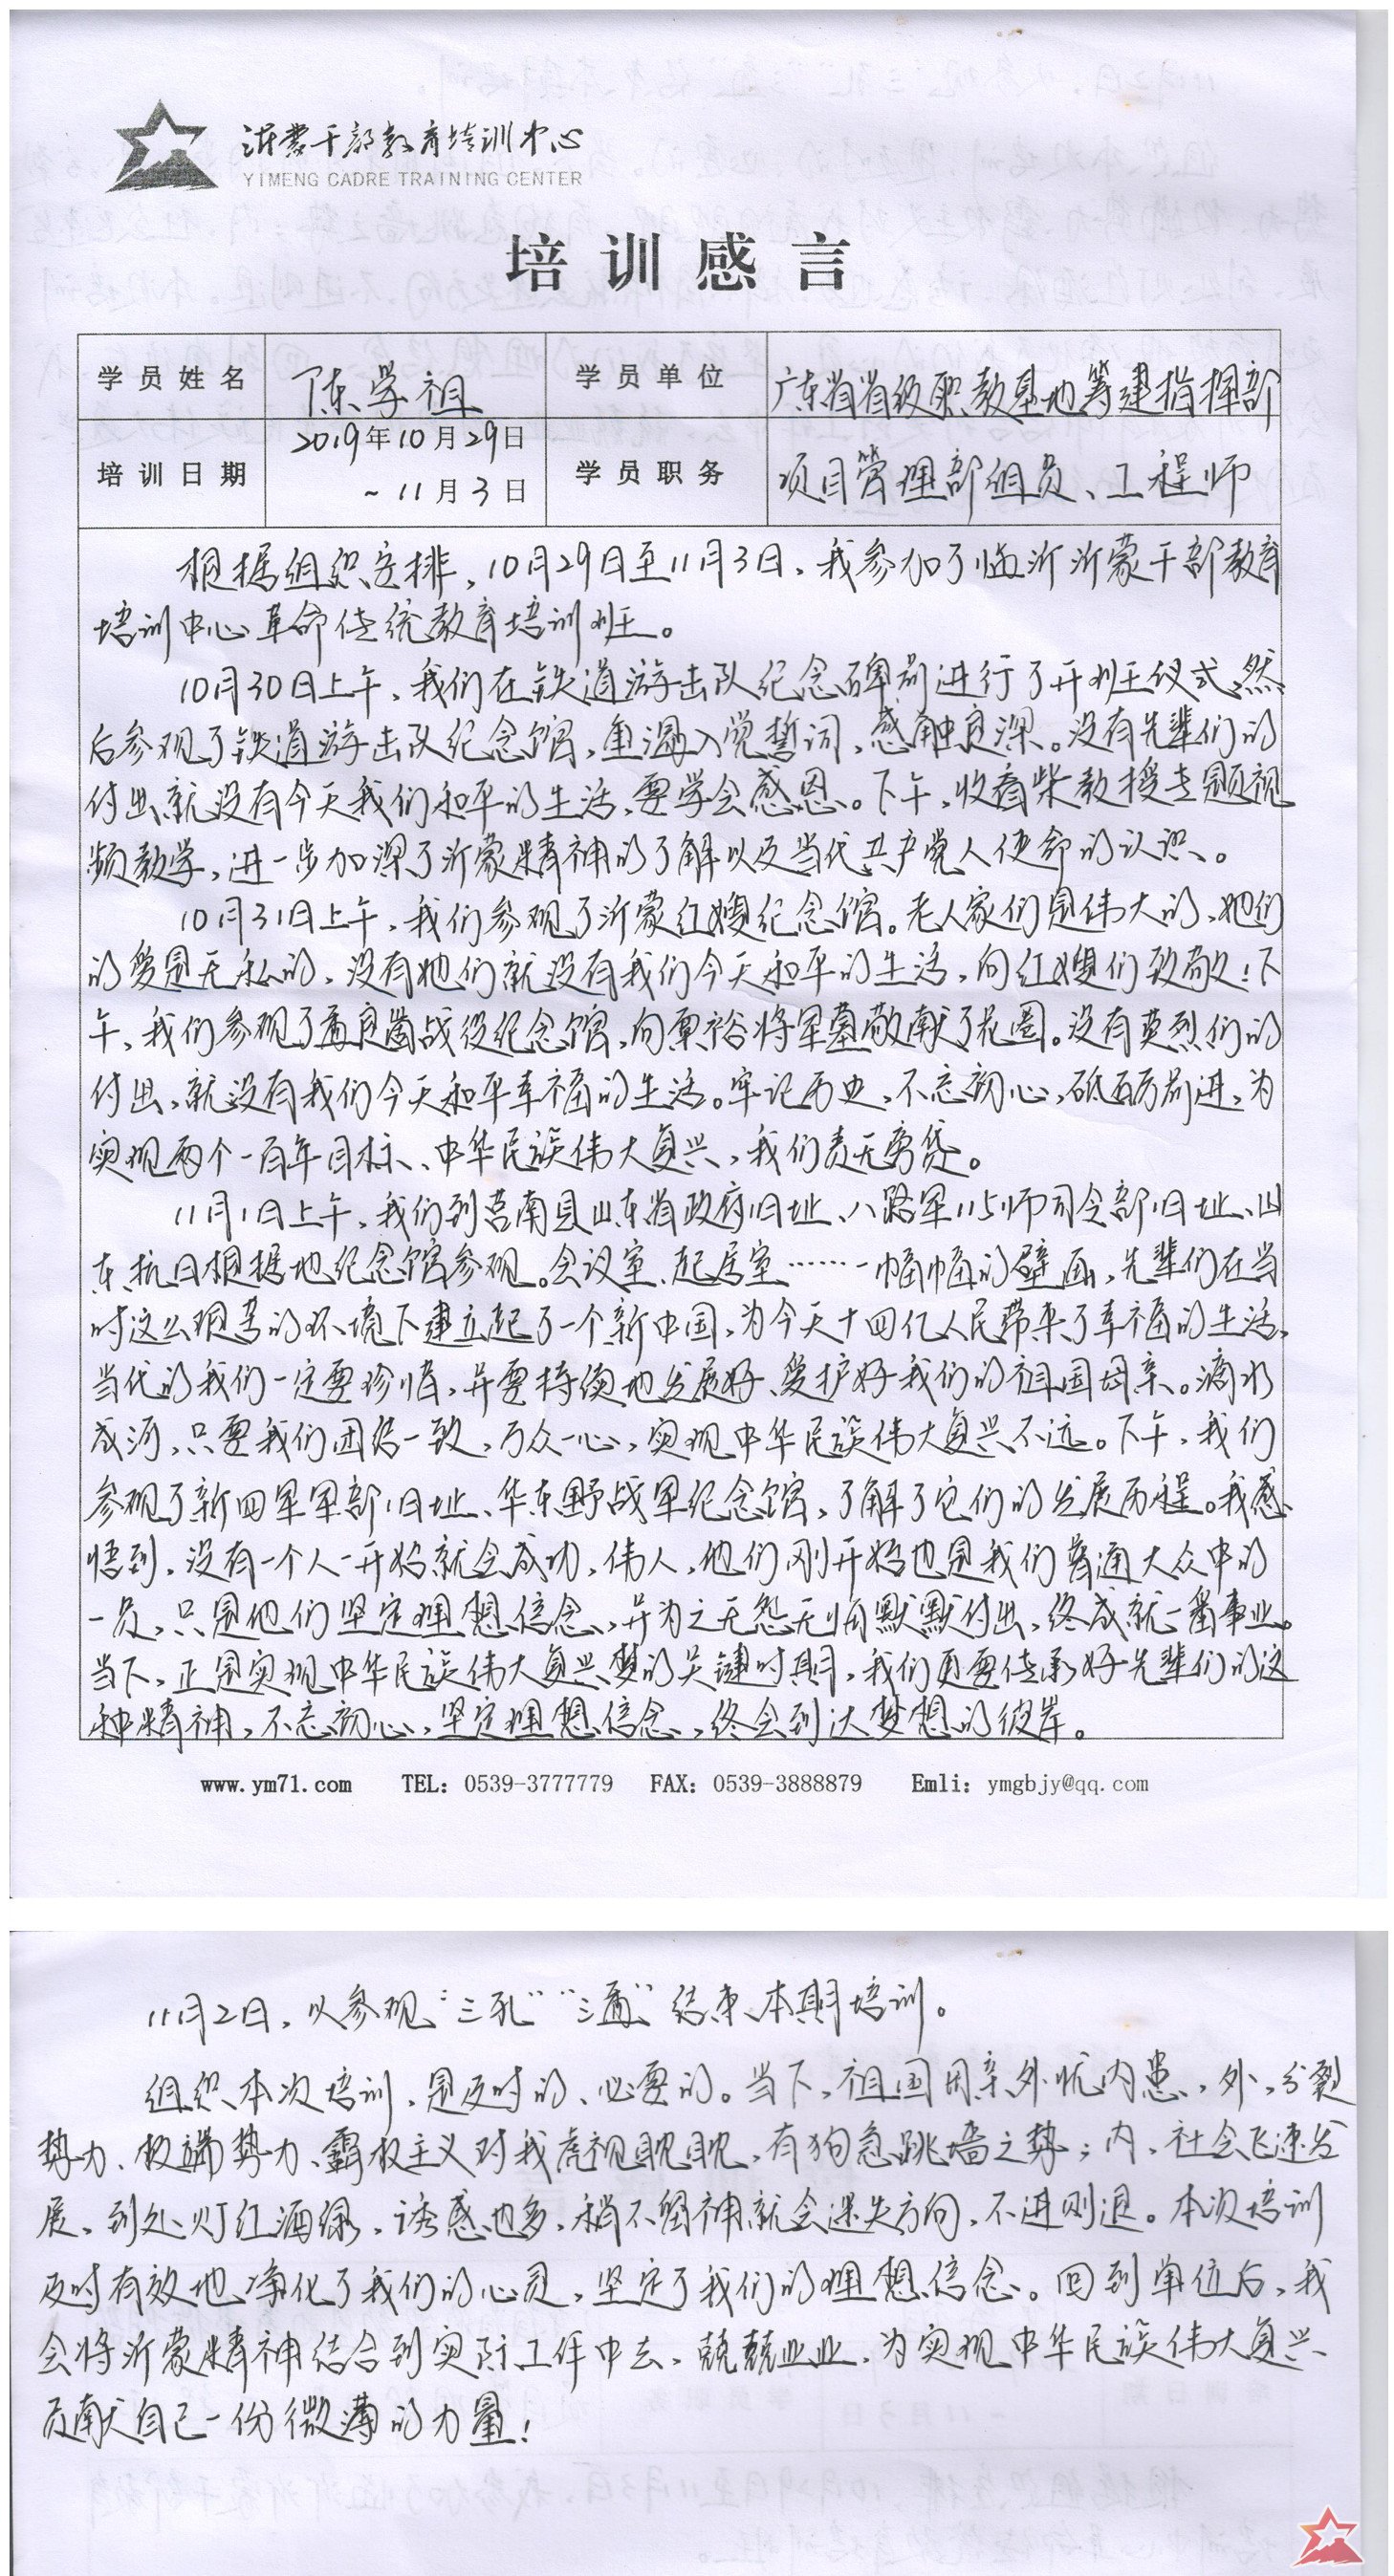 沂蒙干部教育培训中心
YIMENG CADRE TRAINING CENTER
培训感言
学员姓名 陈学祖 学员单位 广东省省级职教基地筹建指挥部
培训日期 2019年10月29日 ~11月3日 学员职务 项目管理部组员、工程师
根据组织安排,10月29日至11月3日,我参加了临沂沂蒙干部教育
培训中心革命传统教育培训班。
10月30日上午,我们在铁道游击队纪念碑前进行了开班仪式,然
后参观了铁道游击队纪念馆,重温入党誓词,感触良深。没有先辈们的
付出,就没有今天我们和平的生活,要学会感恩。下午,收看柴教授专题视
频教学,进一步加深了沂蒙精神的了解以及当代共产党人使命的认识。
10月31日上午,我们参观了沂蒙红嫂纪念馆。老人家们是伟大的,她们
的爱是无私的,没有她们就没有我们今天和平的生活,向红嫂们致敬!下
午,我们参观了孟良崮战役纪念馆,向粟裕将军墓敬献了花圈。没有英烈们的
付出,就没有我们今天和平幸福的生活。牢记历史,不忘初心,砥砺前进,为
实现两个一百年目标、中华民族伟大复兴,我们责无旁贷。
11月1日上午,我们到莒南县山东省政府旧址、八路军115师司令部旧址、山
东抗日根据地纪念馆参观。会议室、起居室……一幅幅的壁画,先辈们在当
时这么艰苦的环境下建立起了一个新中国,为今天十四亿人民带来了幸福的生活,
当代的我们一定要珍惜,并要持续地发展好、爱护好我们的祖国母亲。滴水
成河,只要我们团结一致,万众一心,实现中华民族伟大复兴不远。下午,我们
参观了新四军军部旧址、华东野战军纪念馆,了解了它们的发展历程。我感
悟到,没有一个人一开始就会成功,伟人,他们刚开始也是我们普通大众中的
一员,只是他们坚定理想信念,并为之无怨无悔默默付出,终成就一番事业。
当下,正是实现中华民族伟大复兴梦的关键时期,我们更要传承好先辈们的这
种精神,不忘初心,坚定理想信念,终会到达梦想的彼岸。
www.ym71.com TEL: 0539-3777779 FAX: 0539-3888879 Emli: ymgbjy@qq.com
11月2日,以参观“三孔”“三孟”结束本期培训。
组织本次培训,是及时的、必要的。当下,祖国母亲外忧内患,外,分裂
势力、极端势力、霸权主义对我虎视眈眈,有狗急跳墙之势;内,社会飞速发
展,到处灯红酒绿,诱惑也多,稍不留神就会迷失方向,不进则退。本次培训
及时有效地净化了我们的心灵,坚定了我们的理想信念。回到单位后,我
会将沂蒙精神结合到实际工作中去,兢兢业业,为实现中华民族伟大复兴
贡献自己一份微薄的力量!